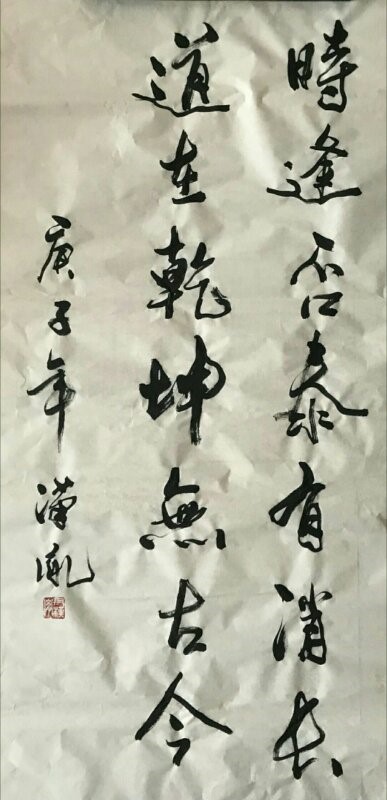 時逢否泰有消長
道在乾坤無古今
庚子年 漢胤